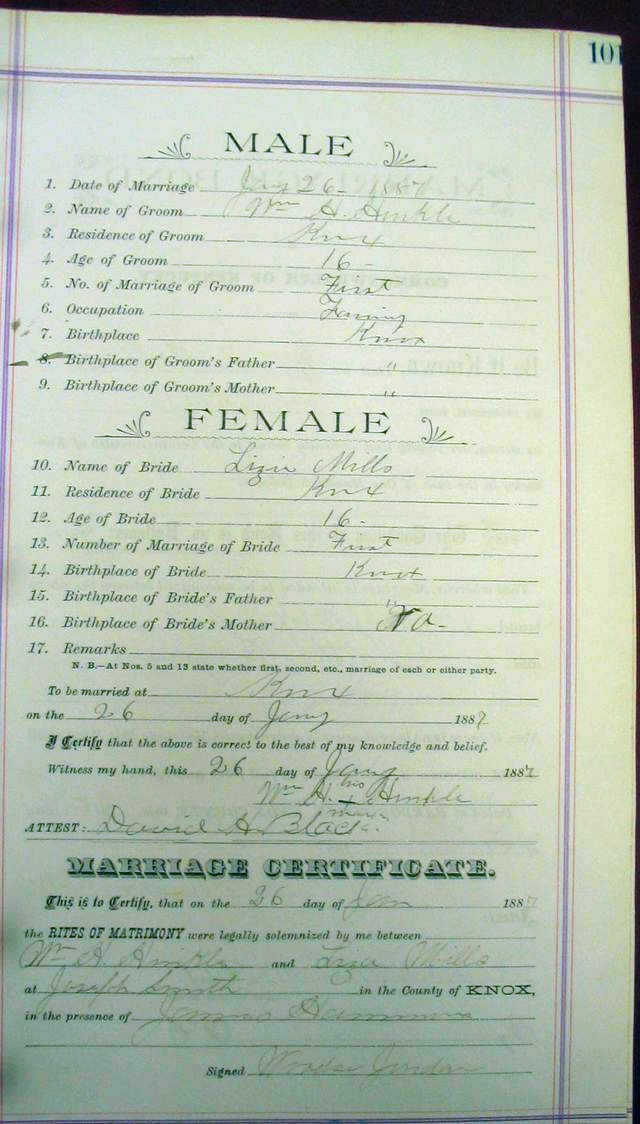 101
MALE
1. Date of Marriage Jany 26 - 1887
2. Name of Groom Wm H. Hinkle
3. Residence of Groom Knox
4. Age of Groom 16 -
5. No. of Marriage of Groom First
6. Occupation Farming
7. Birthplace Knox
8. Birthplace of Groom's Father "
9. Birthplace of Groom's Mother "
FEMALE
10. Name of Bride Lizie Mills
11. Residence of Bride Knox
12. Age of Bride 16 -
13. Number of Marriage of Bride First
14. Birthplace of Bride Knox
15. Birthplace of Bride's Father "
16. Birthplace of Bride's Mother
17. Remarks
N. B.—At Nos. 5 and 13 state whether first, second, etc., marriage of each or either party.
To be married at Knox
on the 26 day of Jany 1887
I Certify that the above is correct to the best of my knowledge and belief.
Witness my hand, this 26 day of Jany 1887
Wm H. his x mark Hinkle
ATTEST: David H Black
MARRIAGE CERTIFICATE.
This is to Certify, that on the 26 day of Jan 1887
the RITES OF MATRIMONY were legally solemnized by me between
Wm H. Hinkle and Liza Mills
at Joseph Smith in the County of KNOX,
in the presence of James Hammons
Signed Jordan